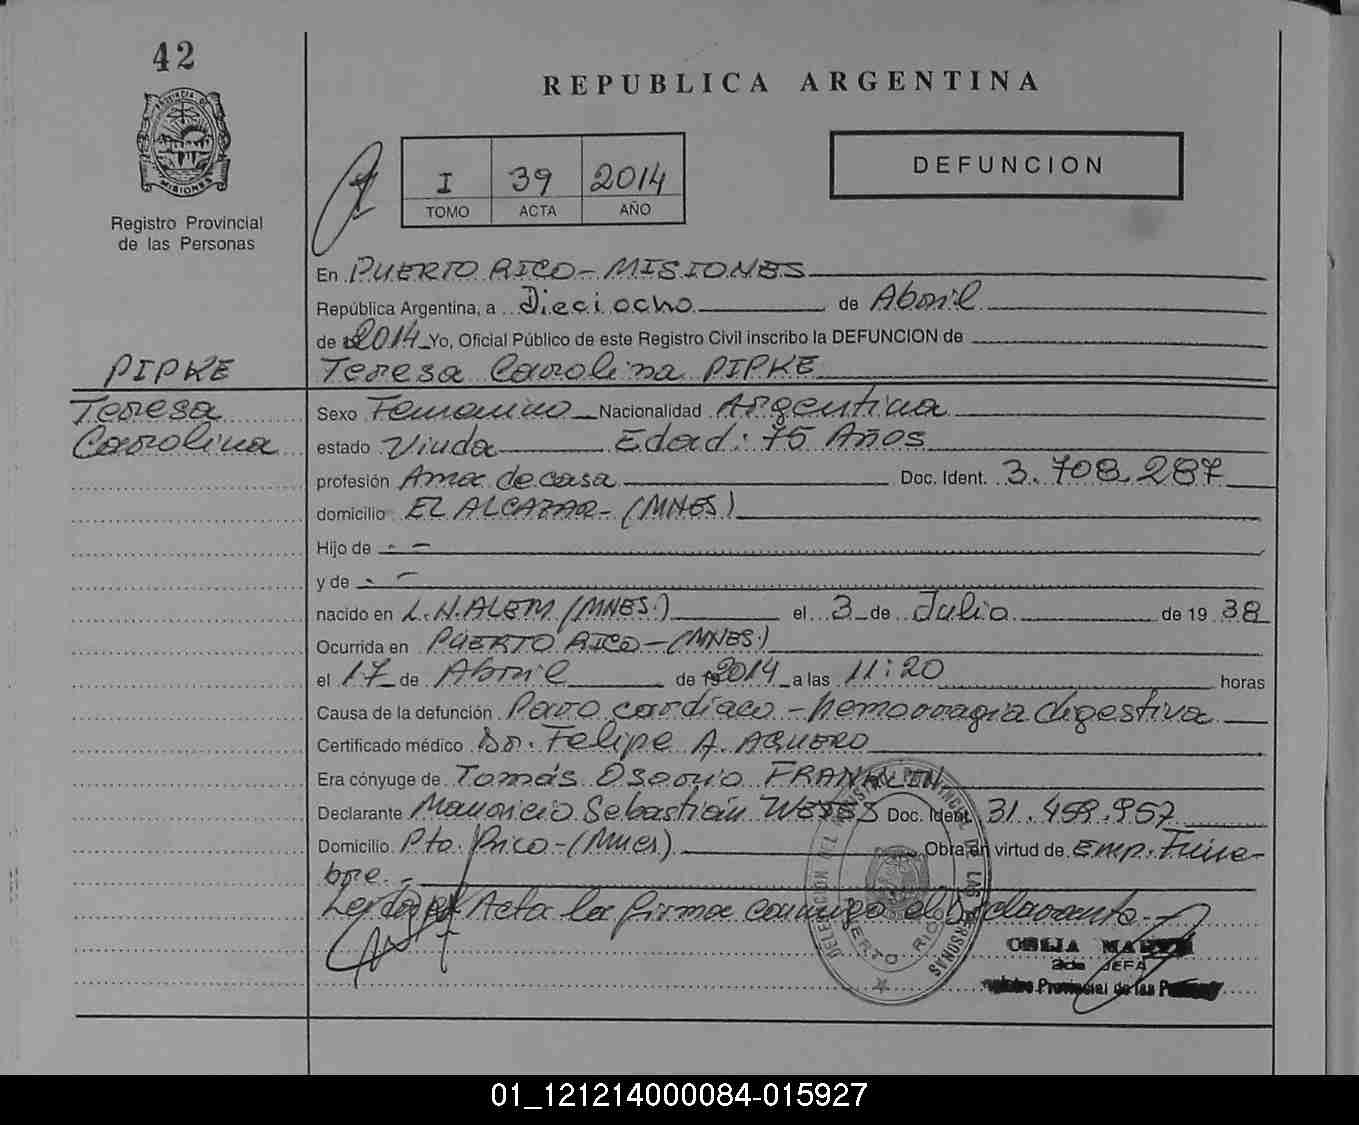 42
REPUBLICA ARGENTINA
PROVINCIA DE
MISIONES
Registro Provincial
de las Personas
I 39 2014
TOMO ACTA AÑO
DEFUNCION
En PUERTO RICO - MISIONES
República Argentina, a Dieciocho de Abril
de 2014 Yo, Oficial Público de este Registro Civil inscribo la DEFUNCION de
PIPKE
Teresa Carolina PIPKE
Teresa
Carolina
Sexo Femenino Nacionalidad Argentina
estado Viuda Edad: 75 Años
profesión Ama de casa Doc. Ident. 3.708.287
domicilio EL ALCAZAR - (MNES)
Hijo de - -
y de - -
nacido en L.N.ALEM (MNES.) el 3 de Julio de 19 38
Ocurrida en PUERTO RICO - (MNES)
el 17 de Abril de 2014 a las 11:20 horas
Causa de la defunción Paro cardíaco - hemorragia digestiva
Certificado médico Dr. Felipe A. AGUERO
Era cónyuge de Tomás Osorio FRANKLEN
Declarante Mauricio Sebastián Doc. Ident. 31.459.957
Domicilio Pto. Rico - (Mnes) Obra en virtud de Emp. Fúne-
bre. -
Leída el Acta la firma conmigo el Declarante -
DELEGACION DEL REGISTRO PROVINCIAL DE LAS PERSONAS
PUERTO RICO
JEFA
Provincial de las
01_121214000084-015927